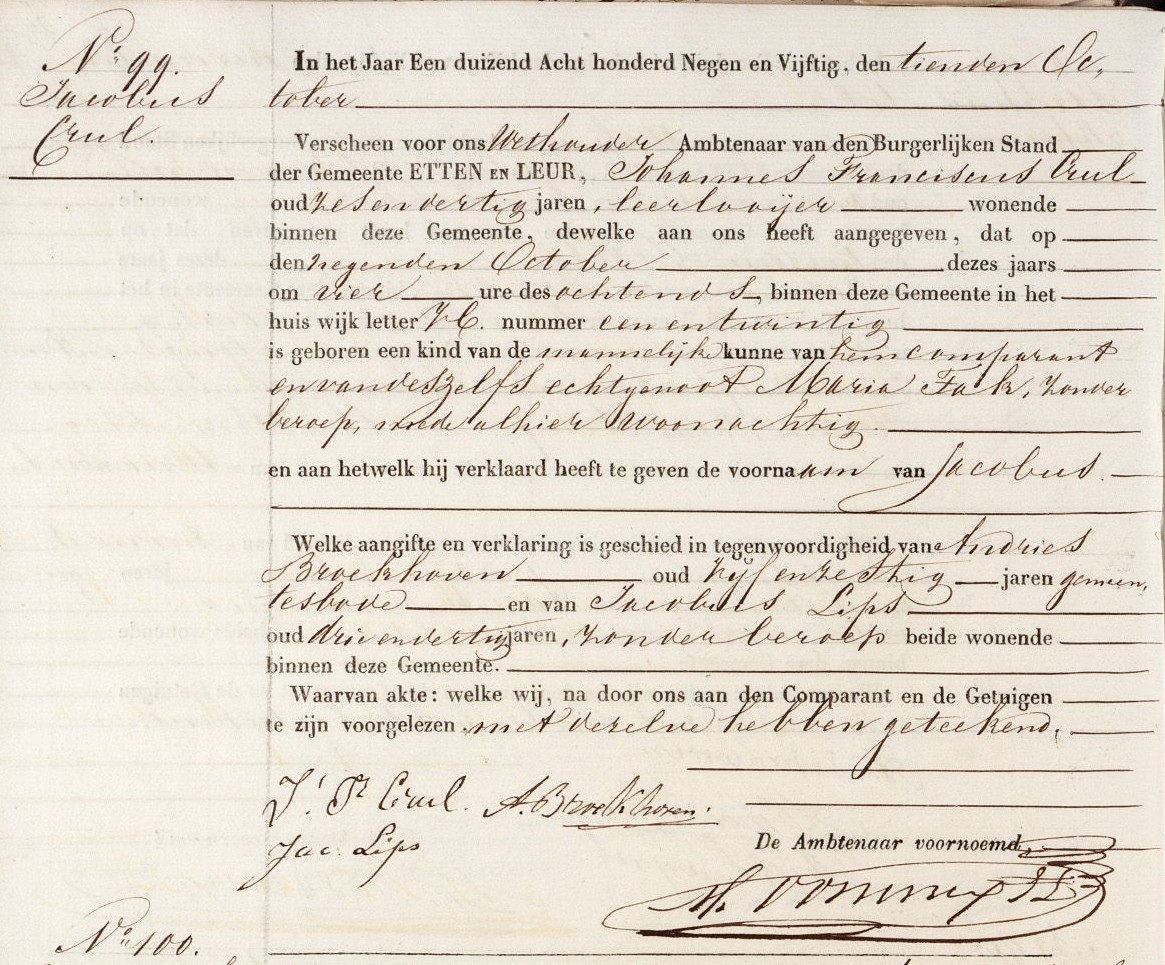 No. 99.
Jacobus
Crul.
In het Jaar Een duizend Acht honderd Negen en Vijftig, den tienden Oc,
tober
Verscheen voor ons Wethouder Ambtenaar van den Burgerlijken Stand
der Gemeente ETTEN EN LEUR, Johannes Franciscus Crul
oud zesendertig jaren, leerlooijer wonende
binnen deze Gemeente, dewelke aan ons heeft aangegeven, dat op
den negenden October dezes jaars
om vier ure des ochtends, binnen deze Gemeente in het
huis wijk letter nummer eenentwintig
is geboren een kind van de mannelijke kunne van hem comparant
en van deszelfs echtgenoot Maria Fak, zonder
beroep, mede alhier woonachtig.
en aan hetwelk hij verklaard heeft te geven de voornaam van Jacobus.
Welke aangifte en verklaring is geschied in tegenwoordigheid van Andries
Broekhoven oud vijfenzestig jaren gemeen,
tesbode en van Jacobus Lips
oud drieendertig jaren, zonder beroep beide wonende
binnen deze Gemeente.
Waarvan akte: welke wij, na door ons aan den Comparant en de Getuigen
te zijn voorgelezen, met dezelve hebben geteekend.
Crul. A. Broekhoven.
Jac. Lips
De Ambtenaar voornoemd,
No. 100.